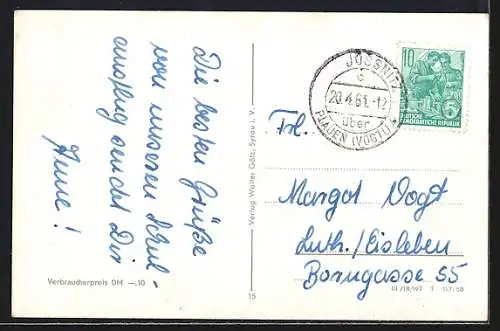 Die besten Grüße
von unserem Schul-
ausflug sendet Dir
Anne!
Verbraucherpreis DM —.10
Verlag Walter
15
JÖSSNITZ
c
20.4.61.-12
über
PLAUEN (VOGTL)
10
DEUTSCHE
DEMOKRATISCHE REPUBLIK
Frl.
Margot Vogt
Luth./Eisleben
Borngasse 55
III/18/197 1